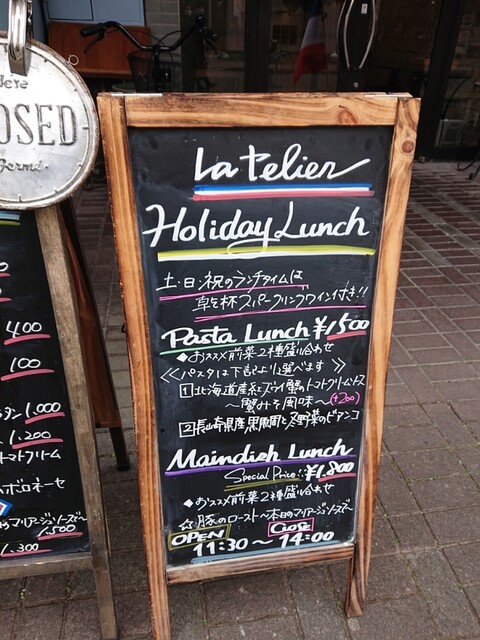 We're
CLOSED
400
100
1.000
1.200
トマトクリーム
ボロネーゼ
1500
1.300
La telier
Holiday Lunch
土・日・祝のランチタイムは
乾杯スパークリングワイン付き!!
Pasta Lunch ¥1500
◆おススメ前菜2種盛り合わせ
《パスタは下記より選べます》
1 北海道産紅ズワイ蟹のトマトクリームソース
〜蟹みそ風味〜 (+200)
2 長崎県産黒鯛と冬野菜のビアンコ
Maindish Lunch
Special Price!! ¥1,800
◆おススメ前菜2種盛り合わせ
☆豚のロースト〜本日のマリアージュソース〜
OPEN Close
11:30 〜 14:00